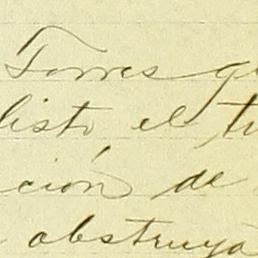 Torres q
listo, el tu
ción de
obstruya